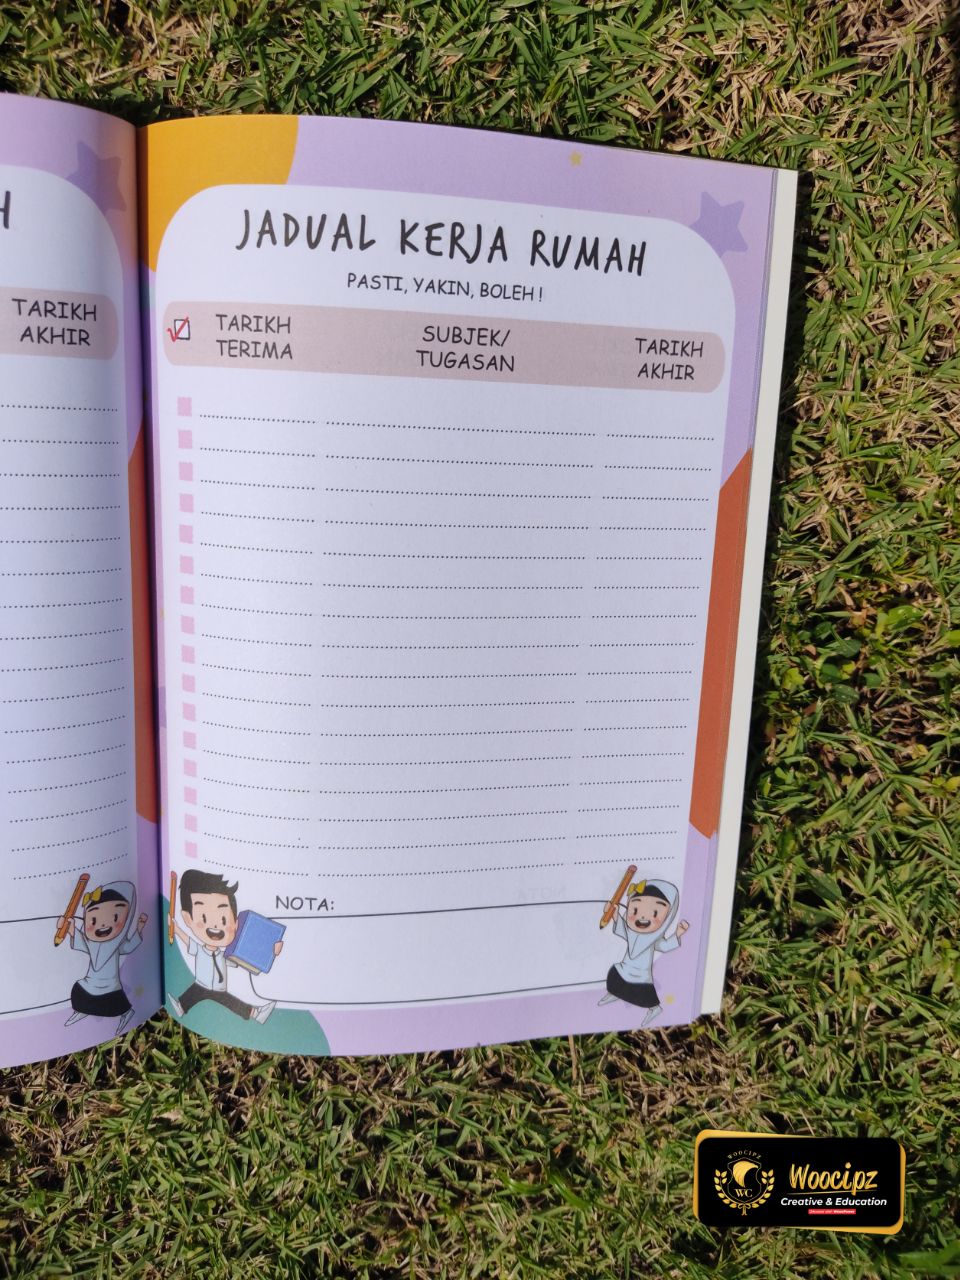 H
TARIKH
AKHIR
JADUAL KERJA RUMAH
PASTI, YAKIN, BOLEH !
TARIKH
TERIMA
SUBJEK/
TUGASAN
TARIKH
AKHIR
NOTA:
WOOCIPZ
WC
Woocipz
Creative & Education